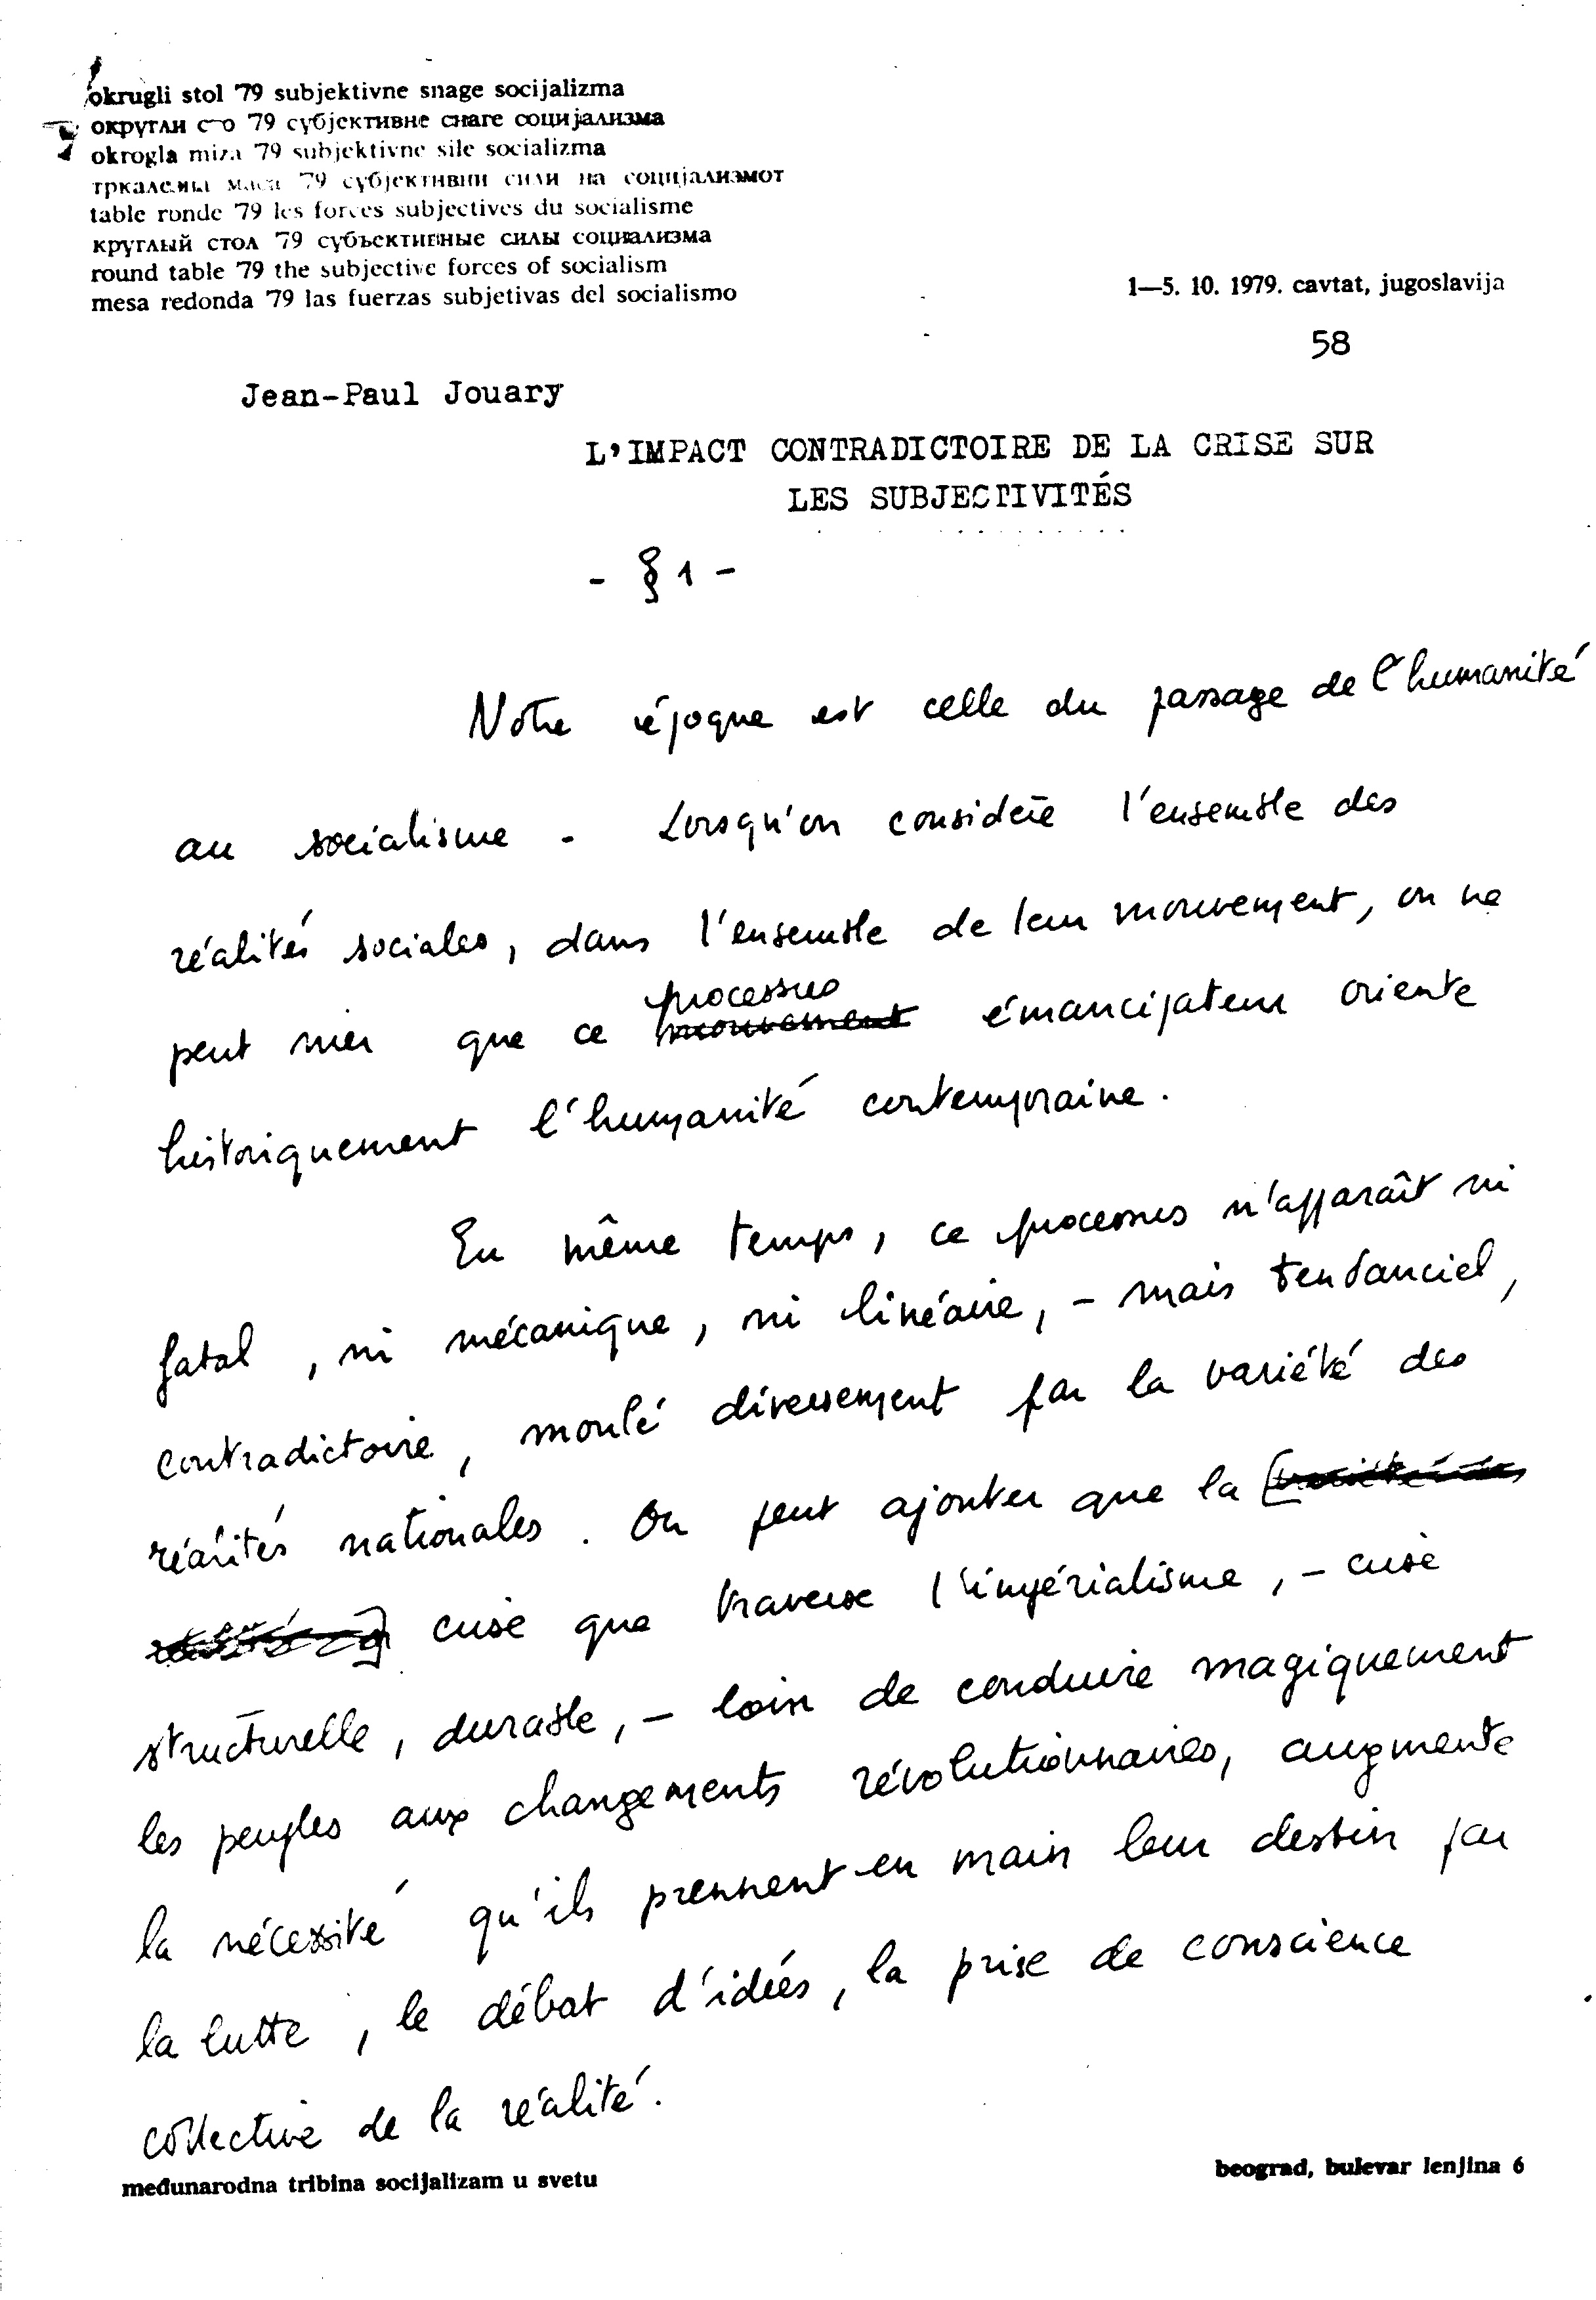 okrugli stol '79 subjektivne snage socijalizma
округли сто '79 субјективне снаге социјализма
okrogla miza '79 subjektivne sile socializma
тркалезна маса '79 субјективни сили на социјализмот
table ronde '79 les forces subjectives du socialisme
круглый стол '79 субъективные силы социализма
round table '79 the subjective forces of socialism
mesa redonda '79 las fuerzas subjetivas del socialismo
1—5. 10. 1979. cavtat, jugoslavija
58
Jean-Paul Jouary
L'IMPACT CONTRADICTOIRE DE LA CRISE SUR
LES SUBJECTIVITÉS
- § 1 -
Notre époque est celle du passage de l'humanité
au socialisme. Lorsqu'on considère l'ensemble des
réalités sociales, dans l'ensemble de leur mouvement, on ne
peut nier que ce mouvement processus émancipateur oriente
historiquement l'humanité contemporaine.
En même temps, ce processus n'apparaît ni
fatal, ni mécanique, ni linéaire, - mais tendanciel,
contradictoire, moulé diversement par la variété des
réalités nationales. On peut ajouter que la
crise que traverse l'impérialisme, - crise
structurelle, durable, - loin de conduire magiquement
les peuples aux changements révolutionnaires, augmente
la nécessité qu'ils prennent en main leur destin par
la lutte, le débat d'idées, la prise de conscience
collective de la réalité.
međunarodna tribina socijalizam u svetu
beograd, bulevar lenjina 6